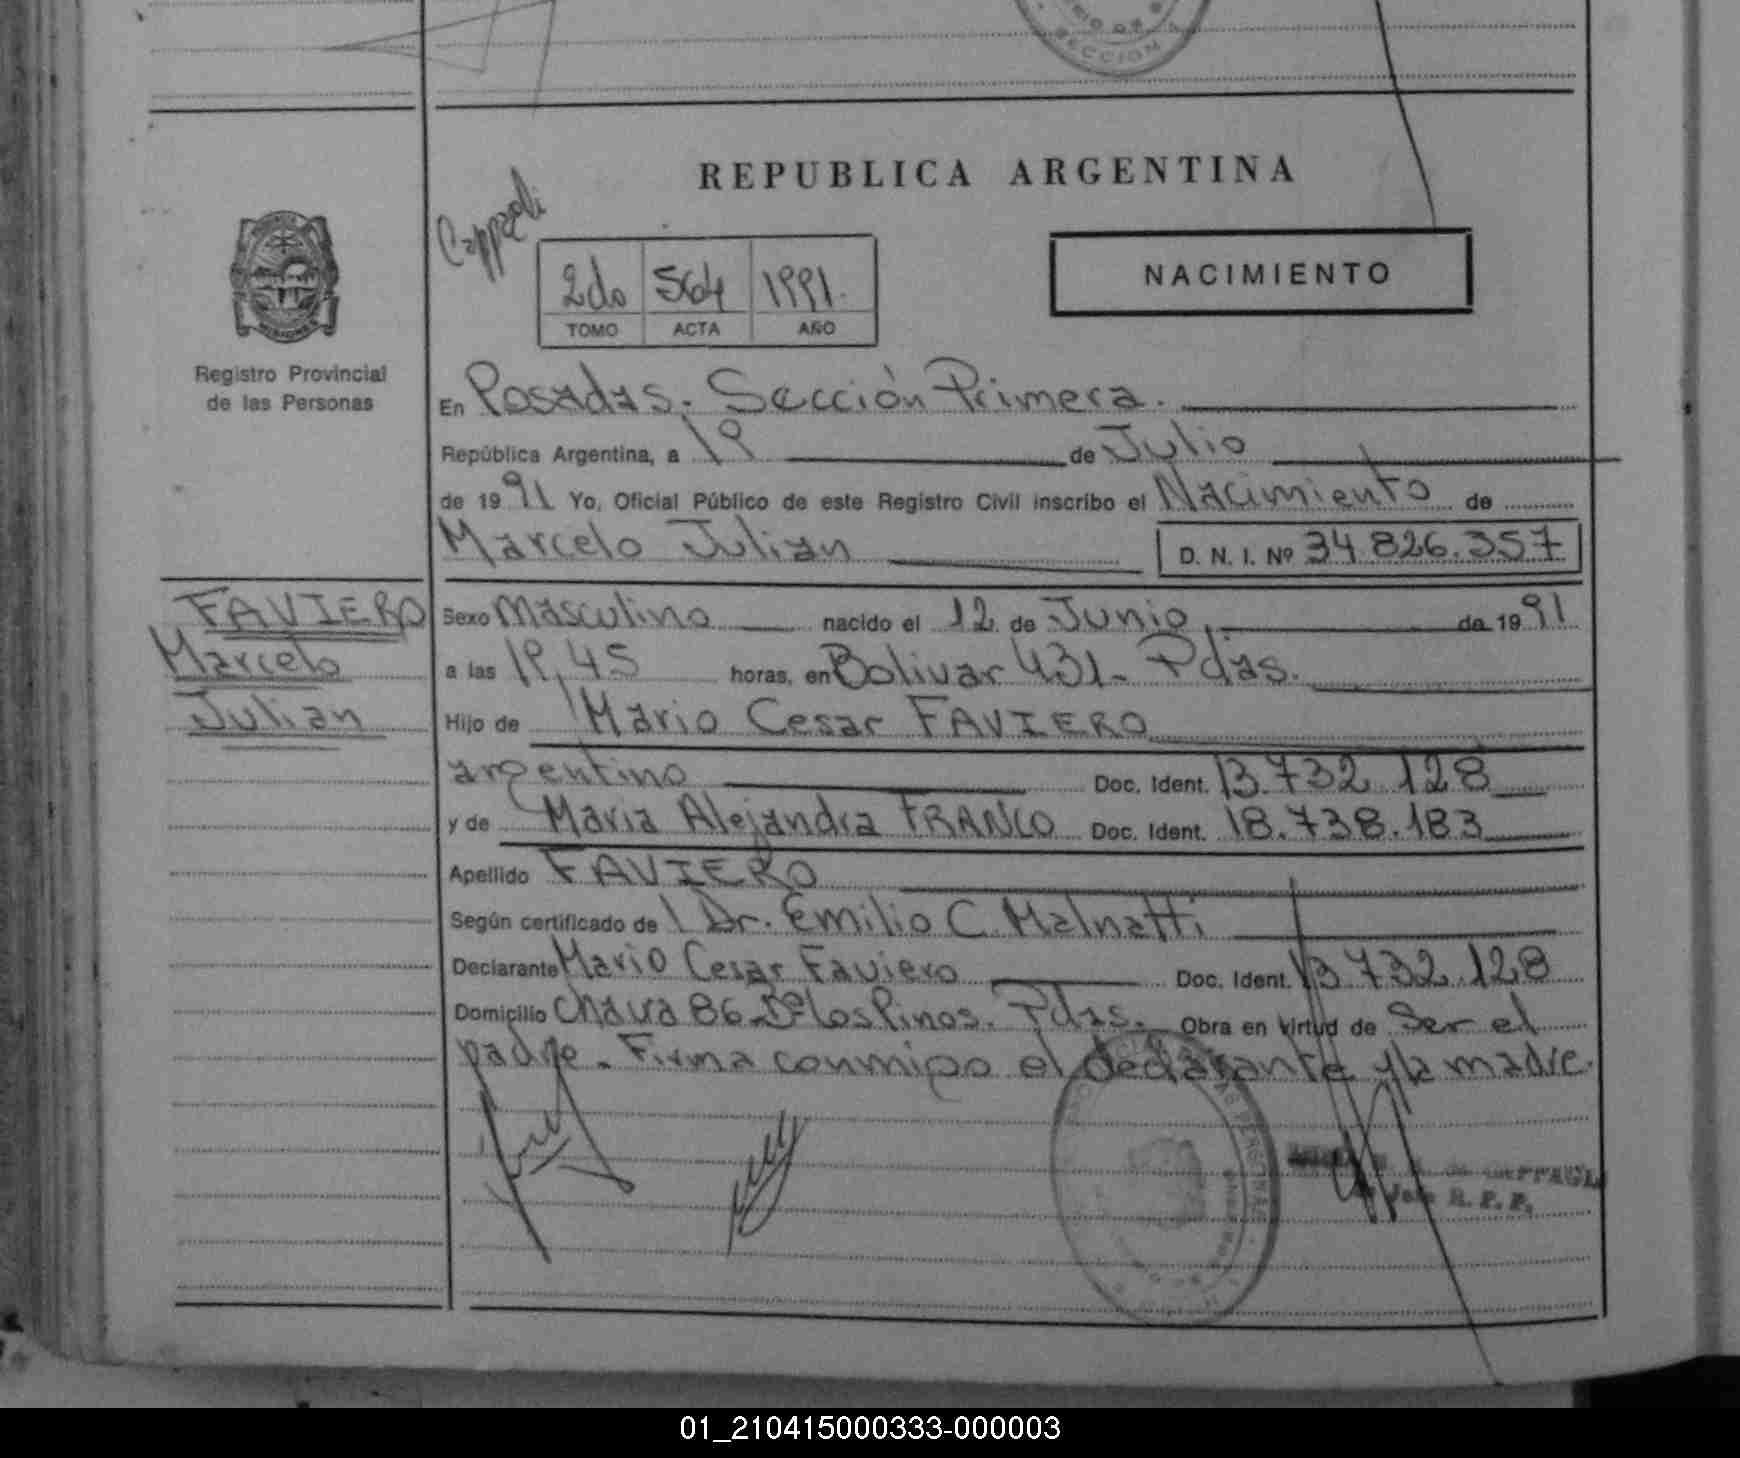 SECCION 1
REPUBLICA ARGENTINA
Cappagli
2do 564 1991.
TOMO ACTA AÑO
NACIMIENTO
Registro Provincial
de las Personas
En Posadas. Sección Primera.
República Argentina, a 19 de Julio
de 1991 Yo, Oficial Público de este Registro Civil inscribo el Nacimiento de
Marcelo Julian D. N. I. Nº 34.826.357
FAVIERO
Marcelo
Julian
Sexo Masculino nacido el 12 de Junio, de 1991
a las 19,45 horas, en Bolivar 431- Pdas.
Hijo de Mario Cesar FAVIERO
argentino Doc. Ident. 13.732.128
y de Maria Alejandra FRANCO Doc. Ident. 18.738.183
Apellido FAVIERO
Según certificado de Dr. Emilio C. Malnatti
Declarante Mario Cesar Faviero Doc. Ident. 13.732.128
Domicilio Chacra 86 Bº Los Pinos. Pdas. Obra en virtud de Ser el
padre. Firma conmigo el declarante y la madre.
Jefe R. P. P.
01_210415000333-000003